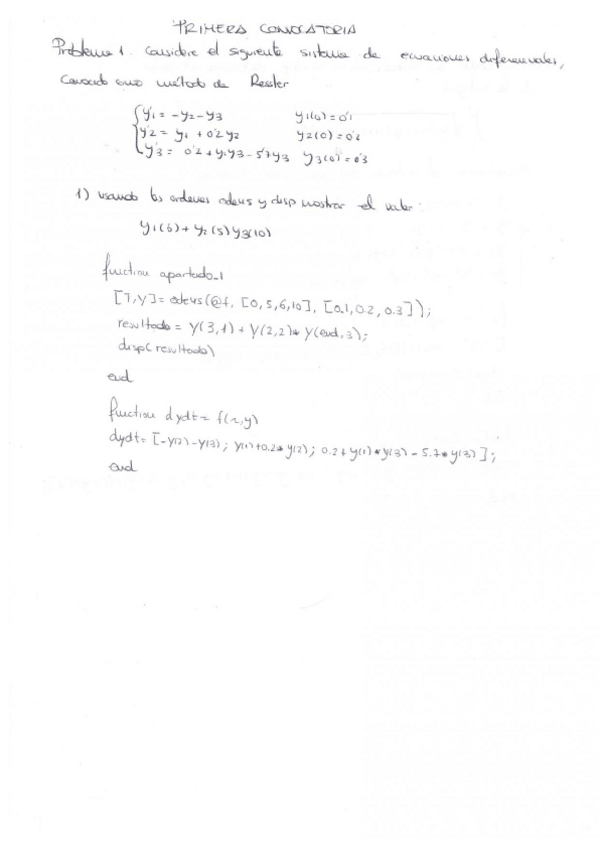 PRIMERA CONVOCATORIA
Problema 1. Considere el siguiente sistema de ecuaciones diferenciales,
Conocido como método de Rossler
y'1 = -y2 - y3 y1(0) = 0'1
y'2 = y1 + 0'2 y2 y2(0) = 0'2
y'3 = 0'2 + y1y3 - 5'7y3 y3(0) = 0'3
1) usando las ordenes ode45 y disp mostrar el valor:
y1(6) + y2(5) y3(10)
function apartado_1
[T,Y] = ode45(@f, [0,5,6,10], [0.1,0.2,0.3]);
resultado = Y(3,1) + Y(2,2)* Y(end,3);
disp(resultado)
end
function dydt = f(x,y)
dydt = [-y(2)-y(3); y(1)+0.2*y(2); 0.2+y(1)*y(3) - 5.7*y(3)];
end